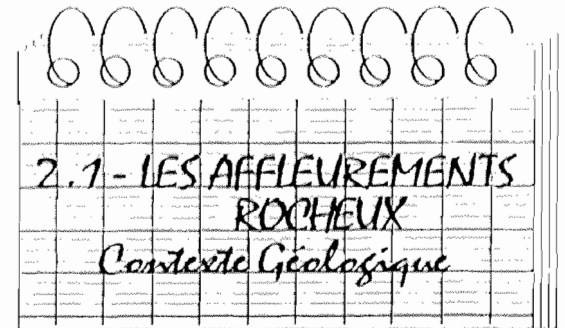 2.1 - LES AFFLEUREMENTS
ROCHEUX
Contexte Géologique